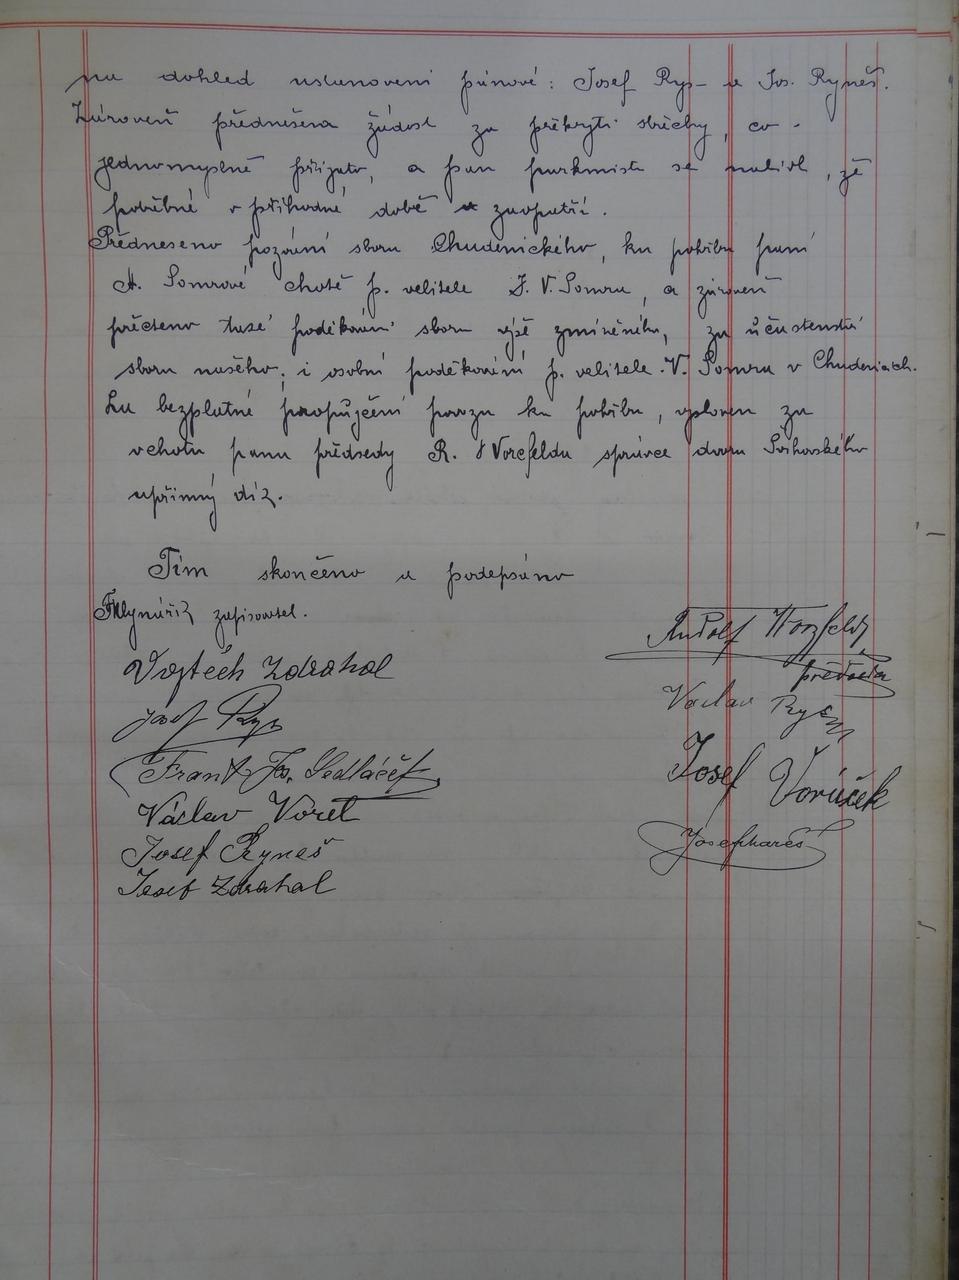 na dohled ustanoveni pánové: Josef Rys – a Jos. Ryneš.
Zároveň přednešena žádost za překryti střechy, co –
jednomyslně přijato, a pan purkmistr se nabídl, že
potřebné v příhodné době zaopatří.
Předneseno pozvání sboru Chudenického, ku pohřbu paní
A. Somrové choťě p. velitele J. V. Somra, a zároveň
přečteno též poděkování sboru výše zmíněného, za účastenství
sboru našeho, i osobní poděkování p. velitele V. Somra v Chudenicích.
Za bezplatné propůjčení povozu ku pohřbu, vysloven za
ochotu panu předsedy R. Vorcfeldu správce dvoru Švihovského
upřimný dík.
Tím skončeno a podepsáno
Mlynářík zapisovatel.
Rudolf Worzfeld
předseda
Vojtěch Zdrahal
Václav
Josef Rys
Frant. Jos. Sedláček
Josef Voráček
Václav Voret
Josef Ryneš
Josef Kareš
Josef Zdrahal